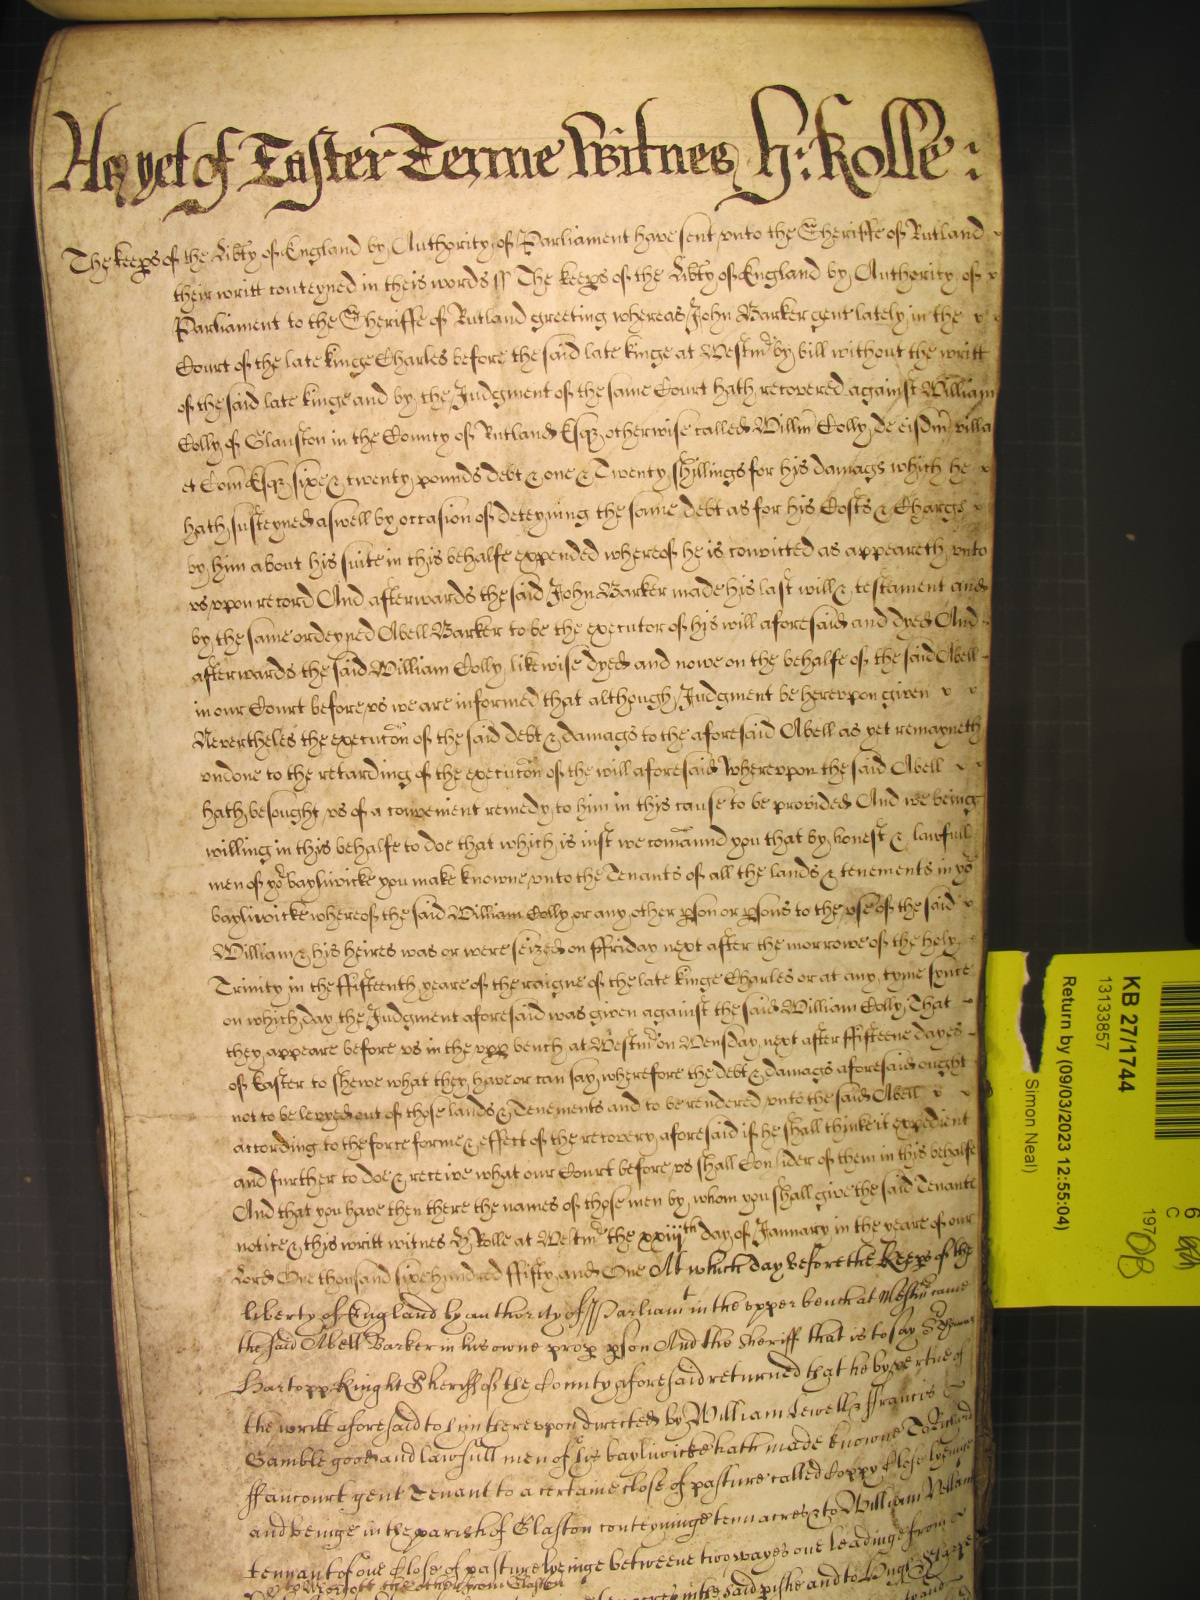 As yet of Easter Terme Witnes H: Rolle :
The keeps of the Libty of England by Authority of Parliament have sent unto the Sheriffe of Rutland
their writt conteyned in theis words ss The keeps of the Libty of England by Authority of
Parliament to the Sheriffe of Rutland greeting whereas John Barker gent lately in the
Court of the late kinge Charles before the said late kinge at Westmr by bill without the writt
of the said late kinge and by the Judgment of the same Court hath recovered against William
Colly of Glauston in the County of Rutland Esqr otherwise called Willm Colly de eisdm villa
et Com Esqr sixe & twenty pounds debt & one & Twenty shillings for his damags which he
hath susteyned aswell by occasion of deteyning the same debt as for his Costs & Chargs
by him about his suite in this behalfe expended whereof he is convicted as appeareth unto
us upon record And afterwards the said John Barker made his last will & testament and
by the same ordeyned Abell Barker to be the executor of his will aforesaid and dyed And
afterwards the said William Colly likewise dyed and nowe on the behalfe of the said Abell
in our Court before us we are informed that although Judgment be hereupon given
Nevertheles the executon of the said debt & damags to the aforesaid Abell as yet remayneth
undone to the retarding of the executon of the will aforesaid Whereupon the said Abell
hath besought us of a convenient remedy to him in this cause to be provided And we being
willing in this behalfe to doe that which is iust we comaund you that by honest & lawfull
men of yor bayliwicke you make knowne unto the Tenants of all the lands & tenements in yor
bayliwicke whereof the said William Colly or any other pson or psons to the use of the said
William & his heires was or were seized on ffriday next after the morrowe of the holy
Trinity in the ffifteenth yeare of the raigne of the late kinge Charles or at any tyme synce
on which day the Judgment aforesaid was given against the said William Colly That
they appeare before us in the upp bench at Westmr on Wensday next after ffifteene dayes
of Easter to shewe what they have or can say wherefore the debt & damags aforesaid ought
not to be levyed out of those lands & Tenements and to be rendered unto the said Abell
according to the force forme & effect of the recovery aforesaid if he shall thinke it expedient
and further to doe & receive what our Court before us shall Consider of them in this behalfe
And that you have then there the names of those men by whom you shall give the said Tenants
notice & this writt witnes H Rolle at Westmr the xxiijth day of January in the yeare of our
Lord One thousand sixe hundred ffifty and One At which day before the Keeps of the
liberty of England by authority of Parliamt in the upper bench at Westmr came
the said Abell Barker in his owne prop pson And the Sheriff that is to say
Hartopp Knight Sheriff of the County aforesaid returned that he by vertue of
the writt aforesaid to him thereupon directed by William Sewell & ffrancis
Gamble good and lawfull men of his bayliwicke hath made knowne To Richard
ffancourt gent Tenant to a certaine close of pasture called Coppy Close lyeinge
and beinge in the parish of Glaston conteyninge tenn acres & to William
tennant of one Close of pasture lyeinge betweene two wayes one leadinge from
the other from Glaston
acres in the said pishe and to Hugh
KB 27/1744
13133857
Return by (09/03/2023 12:55:04)
Simon Neal)
197
6
C